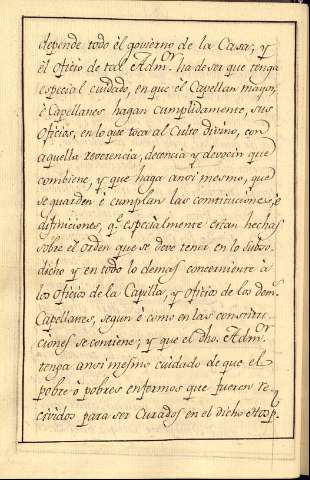 depende todo èl govierno de la Casa, y
èl Oficio de tal Adm.ᵒʳ ha de ser que tenga
especial cuidado, en que èl Capellan mayor,
è Capellanes hagan cumplidamente, sus
Oficios, en lo que toca al Culto divino, con
aquella reverencia, decencia y devocìn que
combiene, y que haga ansi mesmo, que
se guarden è cumplan las constituciones, è
difiniciones, q.ᵉ especialmente estan hechas
sobre èl Orden que se deve tener en lo Subso-
dicho y en todo lo demas concerniente à
los Oficios de la Capilla, y Oficios de los dem.ˢ
Capellanes, segun è como en las constitu-
ciones se contiene; y que el dho. Adm.ᵒʳ
tenga ansi mesmo cuidado de que el
pobre ò pobres enfermos que fueren re-
civídos para ser Curados en el dicho Hosp.